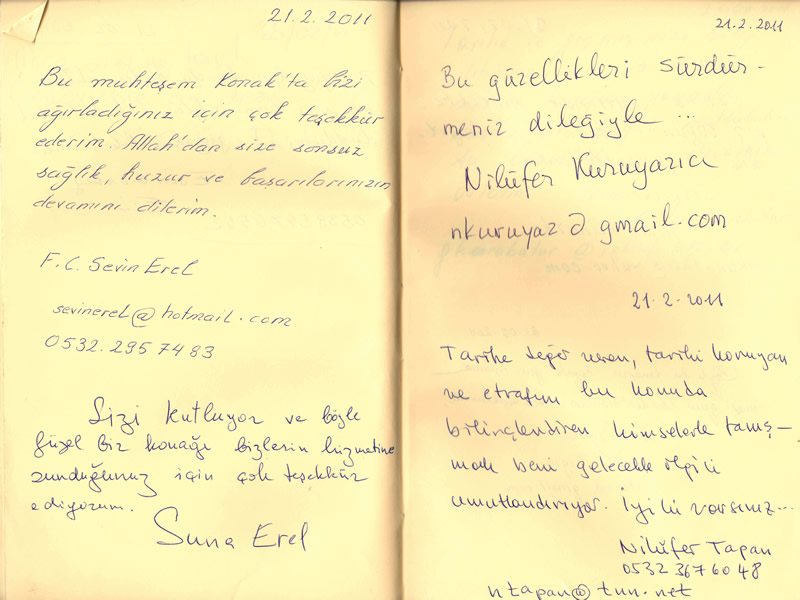 21.2.2011
Bu muhteşem Konak'ta bizi
ağırladığınız için çok teşekkür
ederim. Allah'dan size sonsuz
sağlık, huzur ve başarılarınızın
devamını dilerim.
F.C. Sevin Erel
sevinerel@hotmail.com
0532.295 74 83
Sizi kutluyor ve böyle
güzel bir konağı bizlerin hizmetine
sunduğunuz için çok teşekkür
ediyorum.
Suna Erel
21.2.2011
Bu güzellikleri sürdür-
meniz dileğiyle ...
Nilüfer Kuruyazıcı
nkuruyaz@gmail.com
21.2.2011
Tarihe değer veren, tarihi koruyan
ve etrafını bu konuda
bilinçlendiren kimselerle tanış-
mak beni gelecekle ilgili
umutlandırıyor. İyi ki varsınız...
Nilüfer Tapan
0532 367 60 48
ntapan@tnn.net